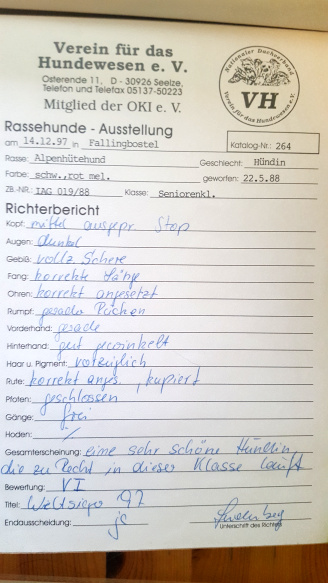 Verein für das
Hundewesen e. V.
Osterende 11, D - 30926 Seelze,
Telefon und Telefax 05137-50223
Mitglied der OKI e. V.
Nationaler Dachverband
VH
Verein für das Hundewesen e.V.
Rassehunde - Ausstellung
am 14.12.97 in Fallingbostel
Katalog-Nr.: 264
Rasse: Alpenhütehund Geschlecht: Hündin
Farbe: schw.,rot mel. geworfen: 22.5.88
ZB.-NR.: IAG 019/88 Klasse: Seniorenkl.
Richterbericht
Kopf: mittel ausgepr. Stop
Augen: dunkel
Gebiß: vollz. Schere
Fang: korrekte Länge
Ohren: korrekt angesetzt
Rumpf: gerader Rücken
Vorderhand: gerade
Hinterhand: gut gewinkelt
Haar u. Pigment: vorzüglich
Rute: korrekt anges., kupiert
Pfoten: geschlossen
Gänge: frei
Hoden: /
Gesamterscheinung: eine sehr schöne Hündin,
die zu Recht in dieser Klasse läuft
Bewertung: V1
Titel: Weltsieger 97
Endausscheidung: ja
Unterschrift des Richters